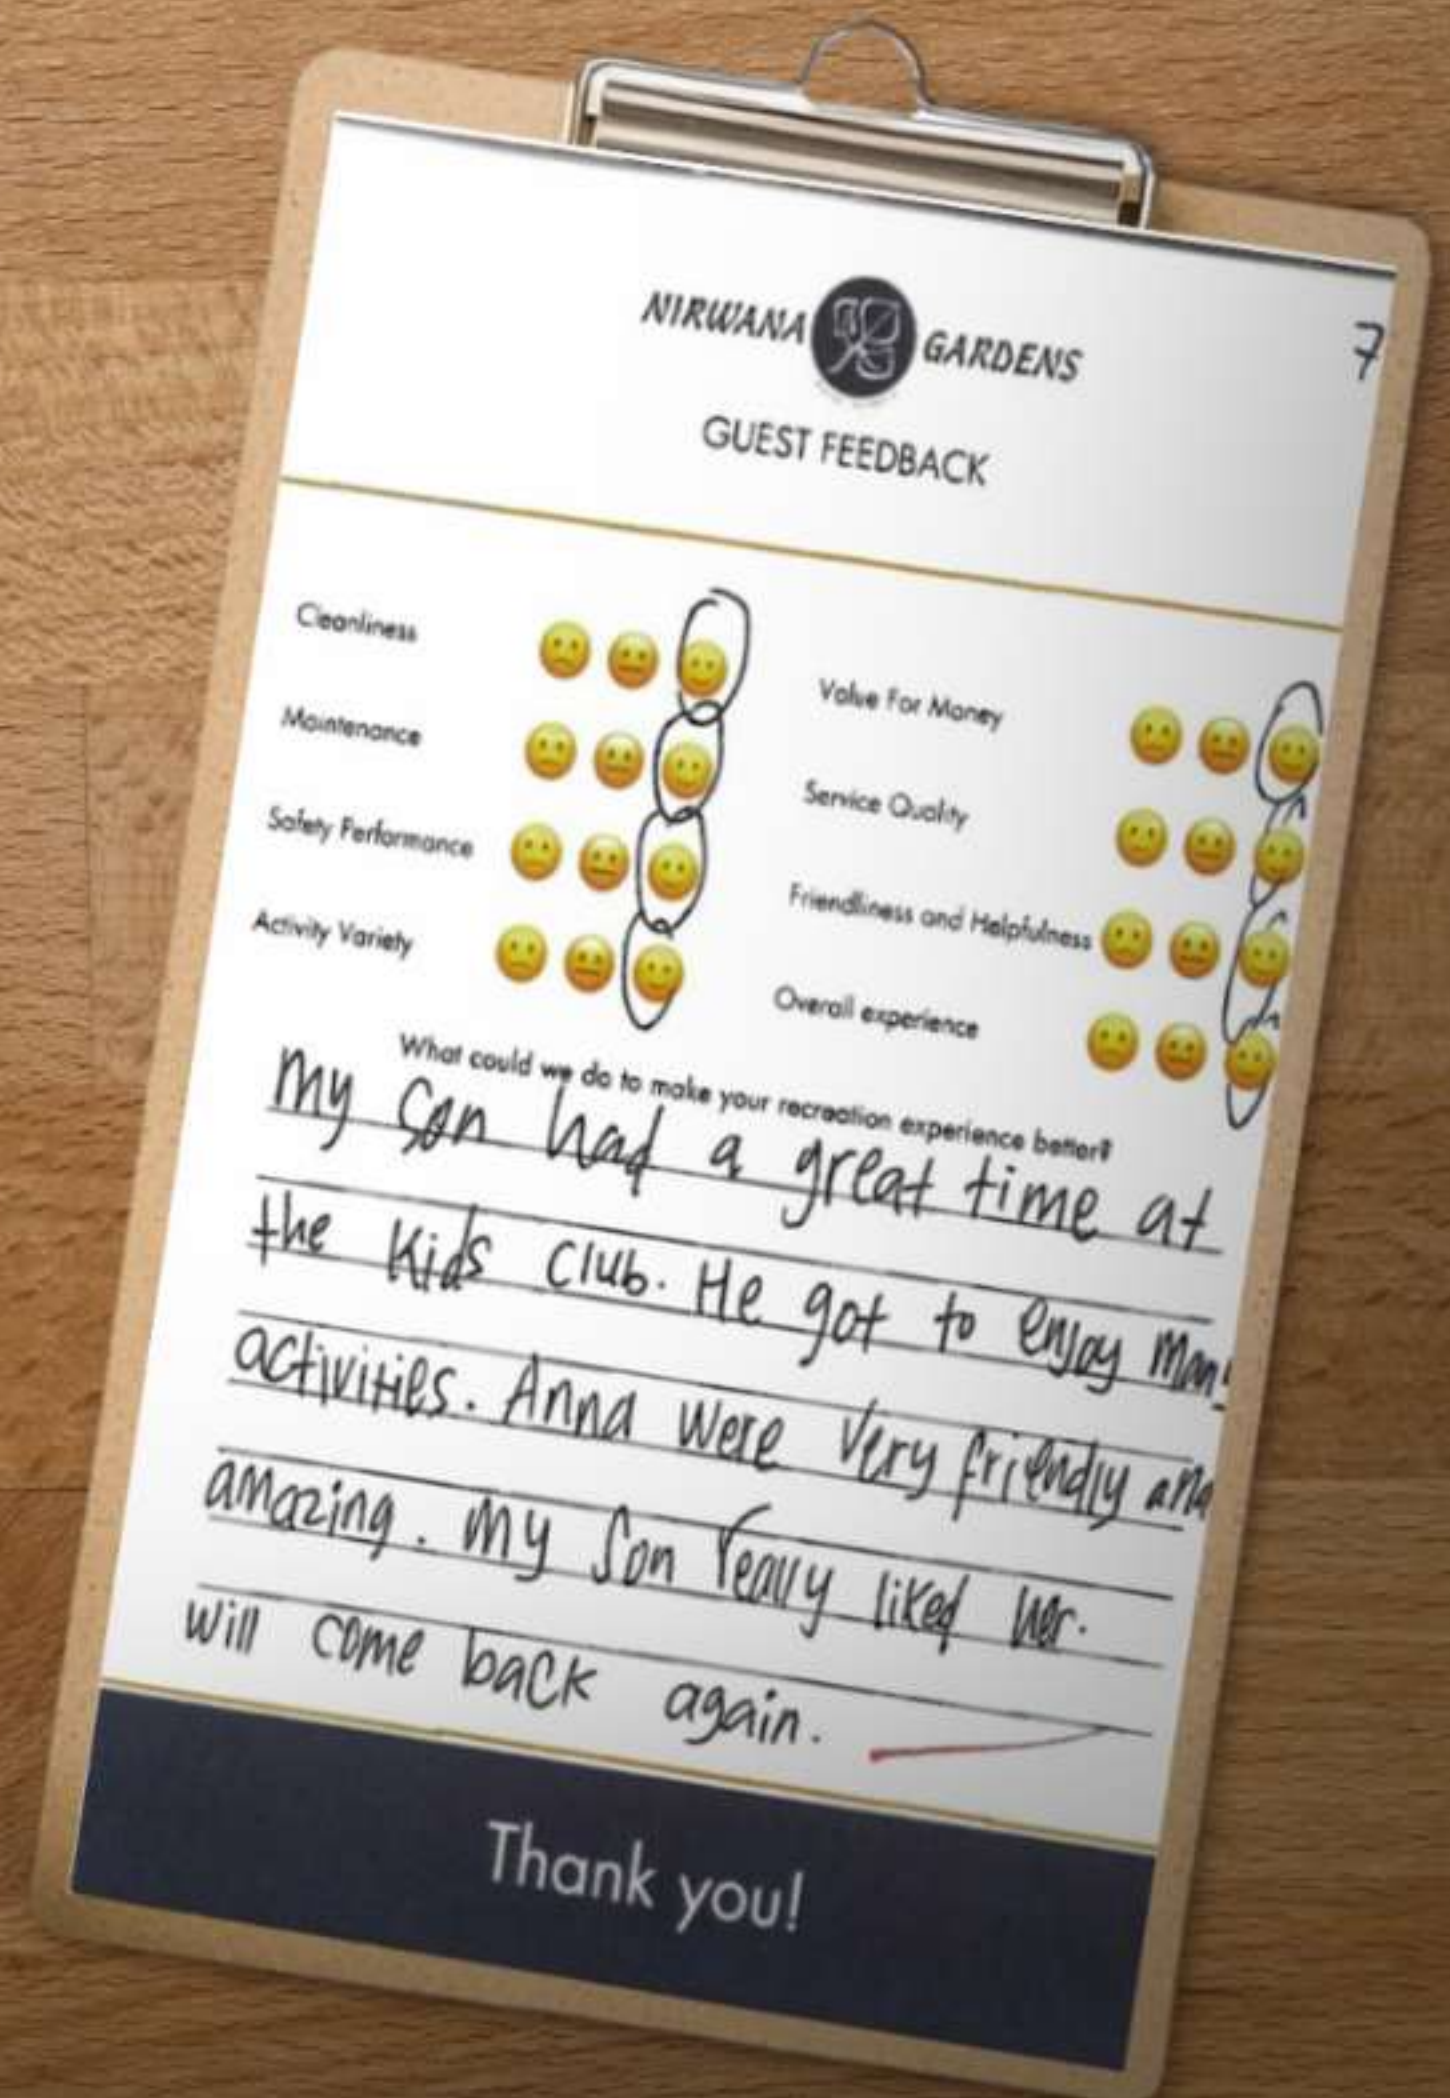 NIRWANA GARDENS
7
GUEST FEEDBACK
Cleanliness
Maintenance
Safety Performance
Activity Variety
Value For Money
Service Quality
Friendliness and Helpfulness
Overall experience
What could we do to make your recreation experience better?
My son had a great time at
the Kids Club. He got to enjoy many
activities. Anna were very friendly and
amazing. My son really liked her.
will come back again.
Thank you!